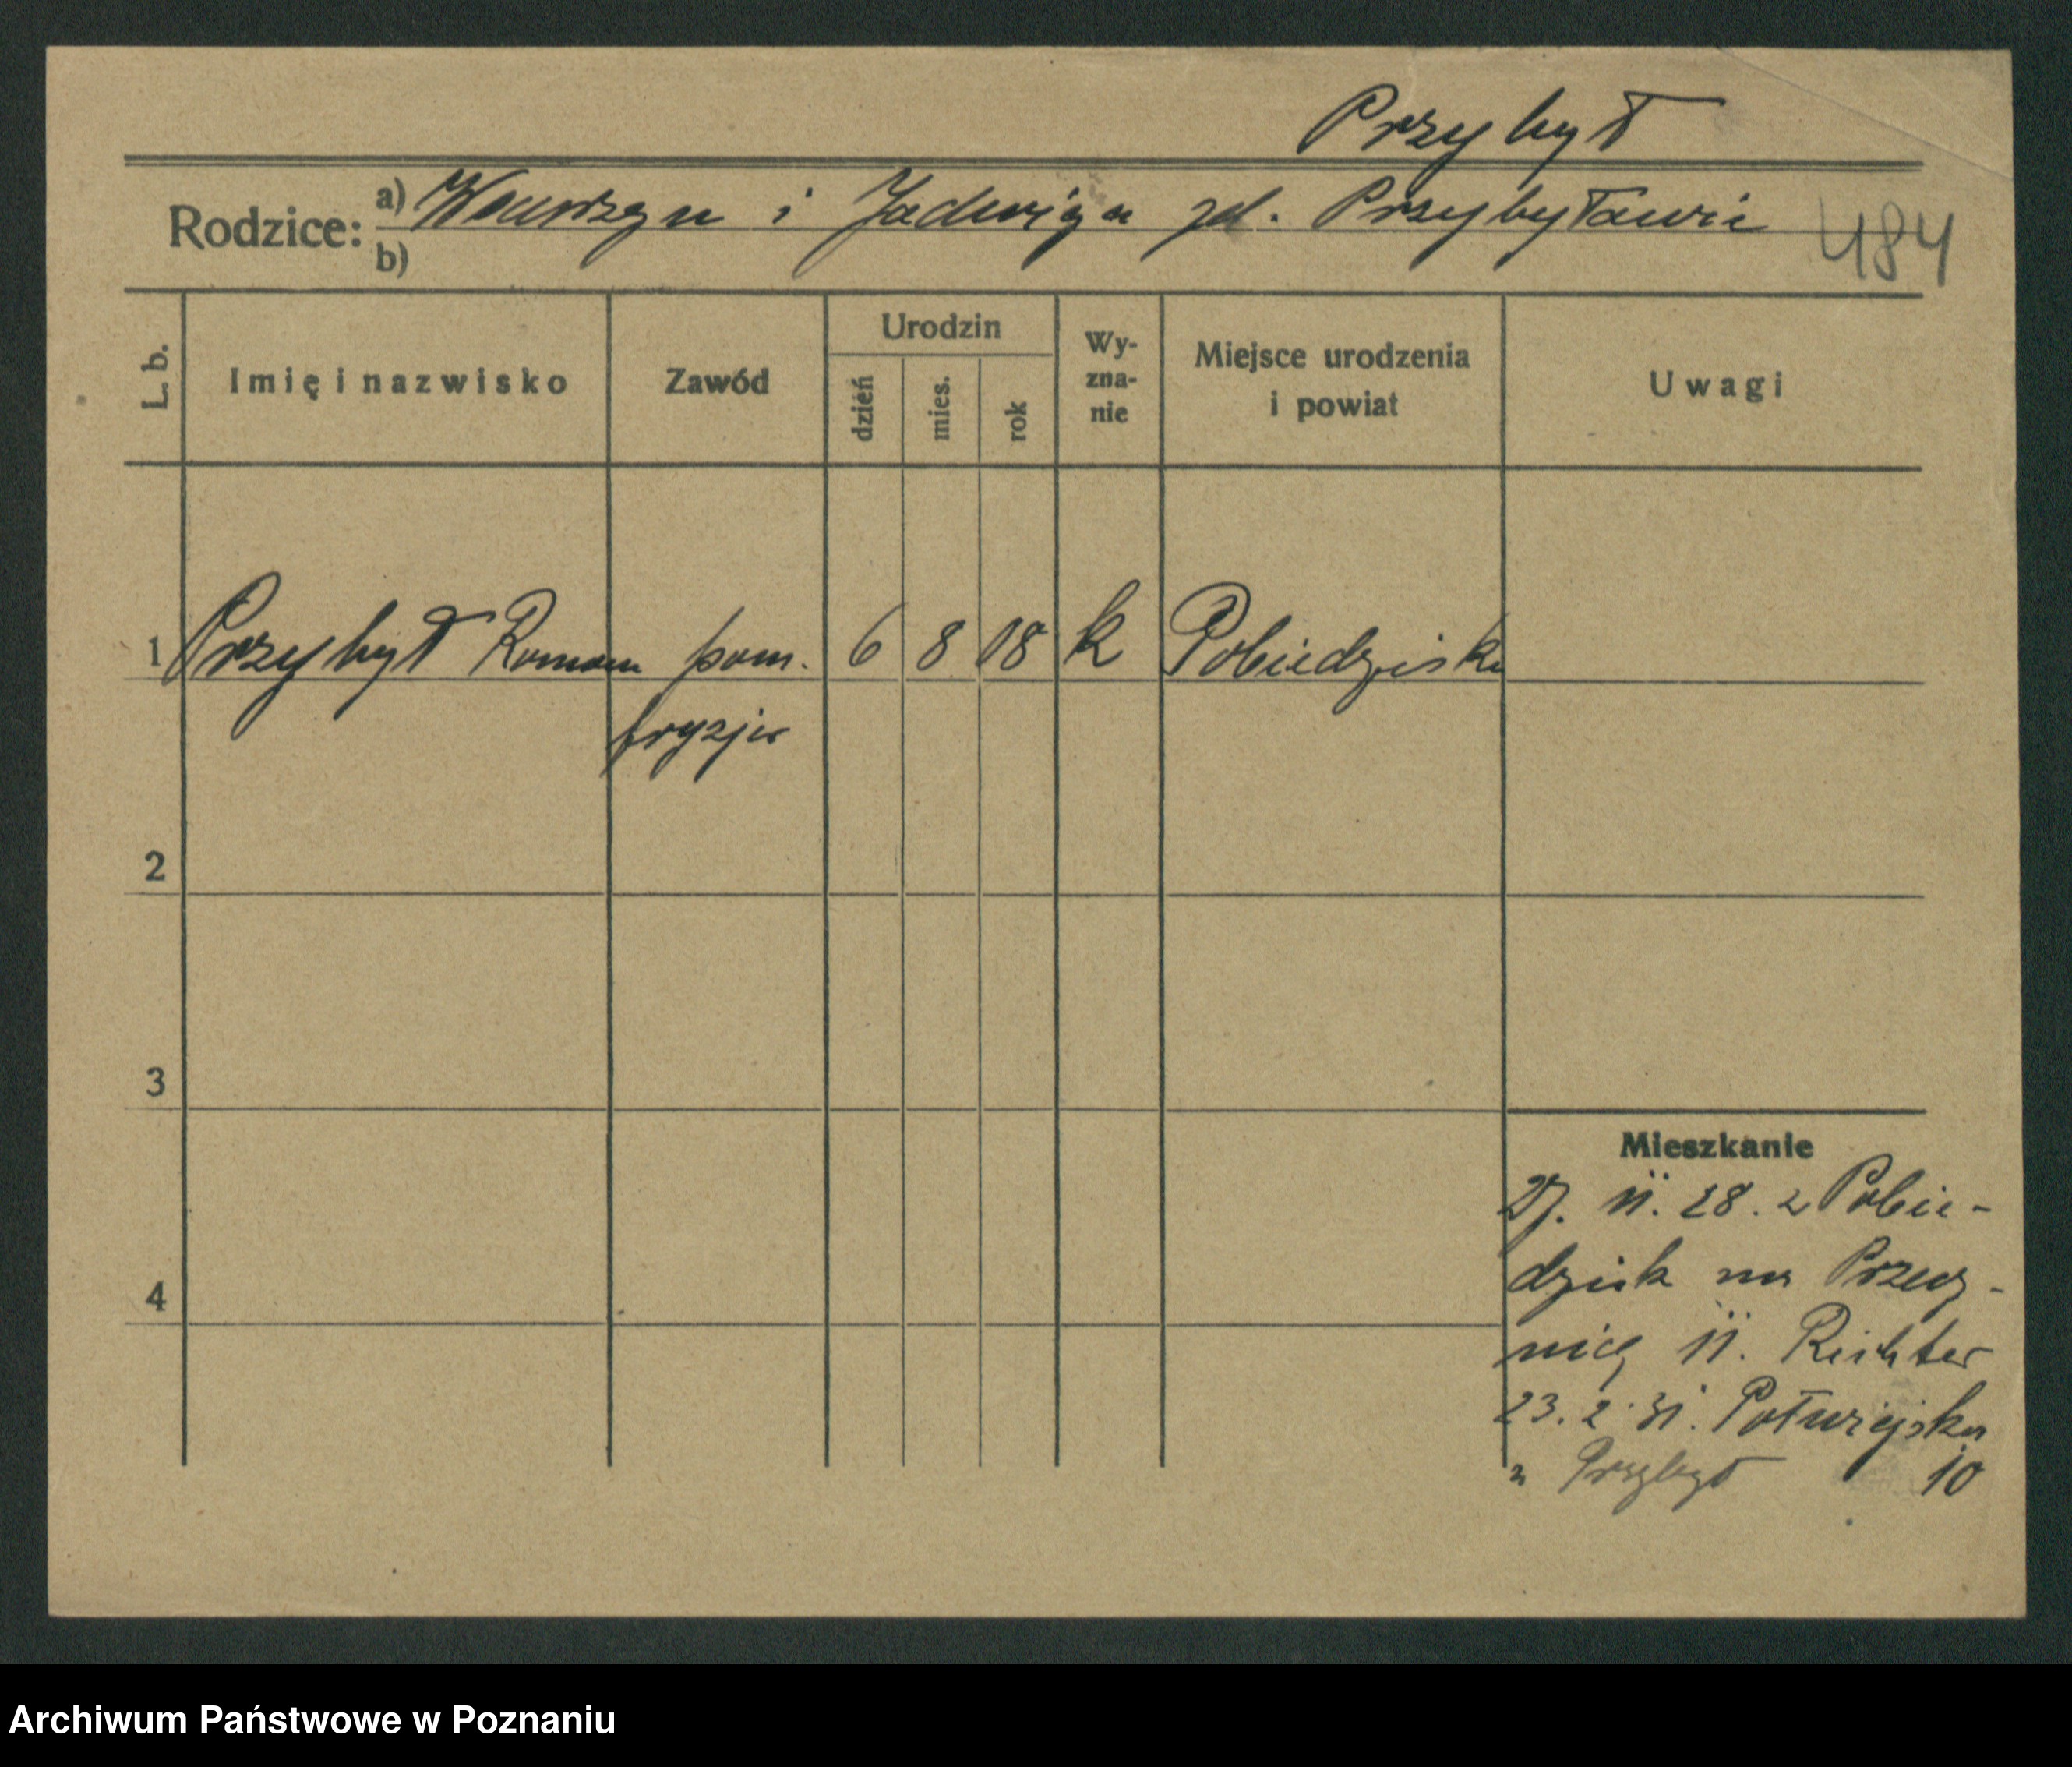 Przybył
Rodzice: a) Wawrzyn i Jadwiga zd. Przybyławie
b)
484
L. b.
Imię i nazwisko
Zawód
Urodzin
dzień
mies.
rok
Wy-
zna-
nie
Miejsce urodzenia
i powiat
Uwagi
1 Przybył Roman pom. 6 8 08 k Pobiedziska
fryzjer
2
3
4
Mieszkanie
27. 11. 28. z Pobie-
dzisk na Przecz-
nicę 11. Richter
23. 2. 31. Półwiejska
u Przybył 10
Archiwum Państwowe w Poznaniu